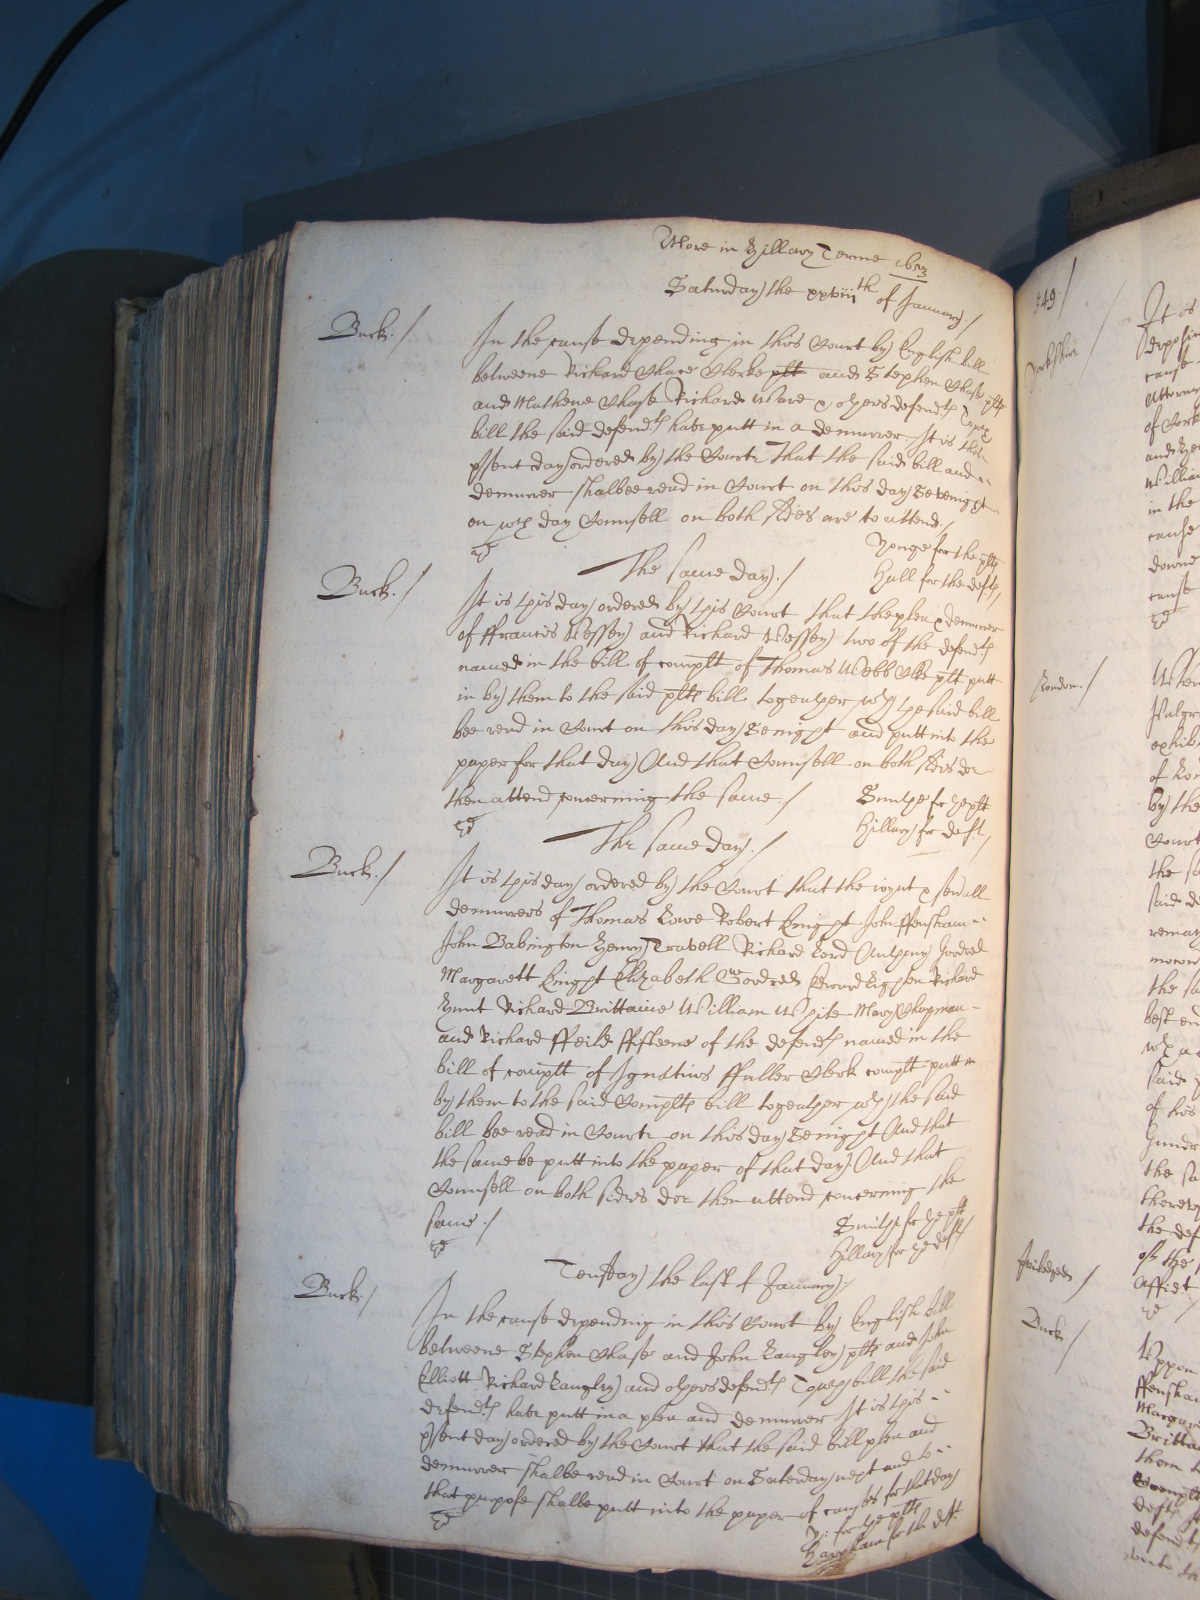 More in Hillary Terme 1653
Saturday the xxviiith of January /
Buck: /
In the cause depending in this Court by English bill
betweene Richard Chace Clerke plt and Stephen Chase plts
and Mathewe Chase Richard More & others defendts To wch
bill the said defendts have putt in a demurrer It is this
psent day ordered by the Courte That the said bill and
demurrer shalbee read in Court on this day Sevenight
on wch day Counsell on both sides are to attend /
Yonge for the plts
Hall for the defts /
The same day. /
Buck. /
It is this day ordered by this Court that the plea & demurrer
of ffrancis Wessey and Richard Wessey two of the defendts
named in the bill of complt of Thomas Webb Clke plt putt
in by them to the said plts bill togeather wth the said bill
bee read in Court on this day Senight and putt into the
paper for that day And that Counsell on both sides doe
then attend concerning the same /
Smithe for the plt
Hillary for deft. /
The same day. /
Buck. /
It is this day ordered by the Court that the ioynt & severall
demurrers of Thomas Lowe Robert Knight John ffensham
John Babington Henry Travell Richard Lord Anthony Goodred
Margarett Knight Elizabeth Goodred Edward Higgen Richard
Hunt Richard Brittaine William White Mary Chapman
and Richard ffeild ffifteene of the defendts named in the
bill of complt of Ignatius ffuller Clerk complt putt in
by them to the said Complts bill togeather wth the said
bill bee read in Courte on this day Senight And that
the same be putt into the paper of that day And that
Counsell on both sides doe then attend concerning the
same. /
Smithe for the plt
Hillary for the deft /
Tuesday the last of January /
Buck /
In the cause depending in this Court by English bill
betweene Stephen Chase and John Langley plts and John
Elliott Richard Langley and others defendts To wch bill the said
defendts have putt in a plea and demurrer It is this
psent day ordered by the Court that the said bill plea and
demurrer shalbe read in Court on Saterday next and to
that purpose shalbe putt into the paper of causes for that day
for the plts
for the deft
549 /
Yorkshire
It is
cause
Attorney
of York
and
Willia
in the
cause
downe
cause
London. /
exhib
of Lon
by the
Court
the sa
said de
remay
the sa
best
wch
said
of his
the sa
thereu
the def
of the
Affidt
Buck /
Uppon
ffensha
Margar
Britta
them
Compl
defts
defend